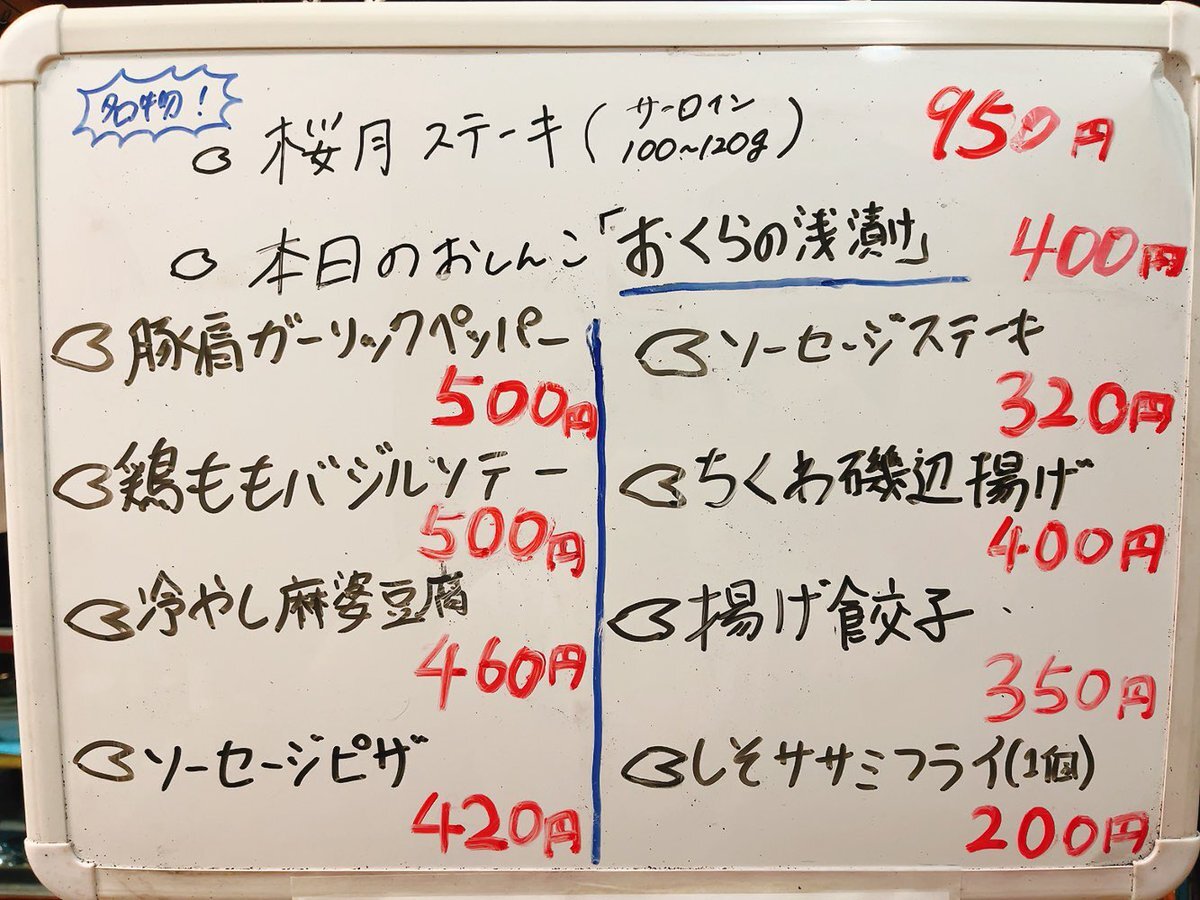 名物!
桜月ステーキ(サーロイン 100~120g) 950円
本日のおしんこ「おくらの浅漬け」 400円
豚肩ガーリックペッパー
500円
鶏ももバジルソテー
500円
冷やし麻婆豆腐
460円
ソーセージピザ
420円
ソーセージステーキ
320円
ちくわ磯辺揚げ
400円
揚げ餃子
350円
しそササミフライ(1個)
200円